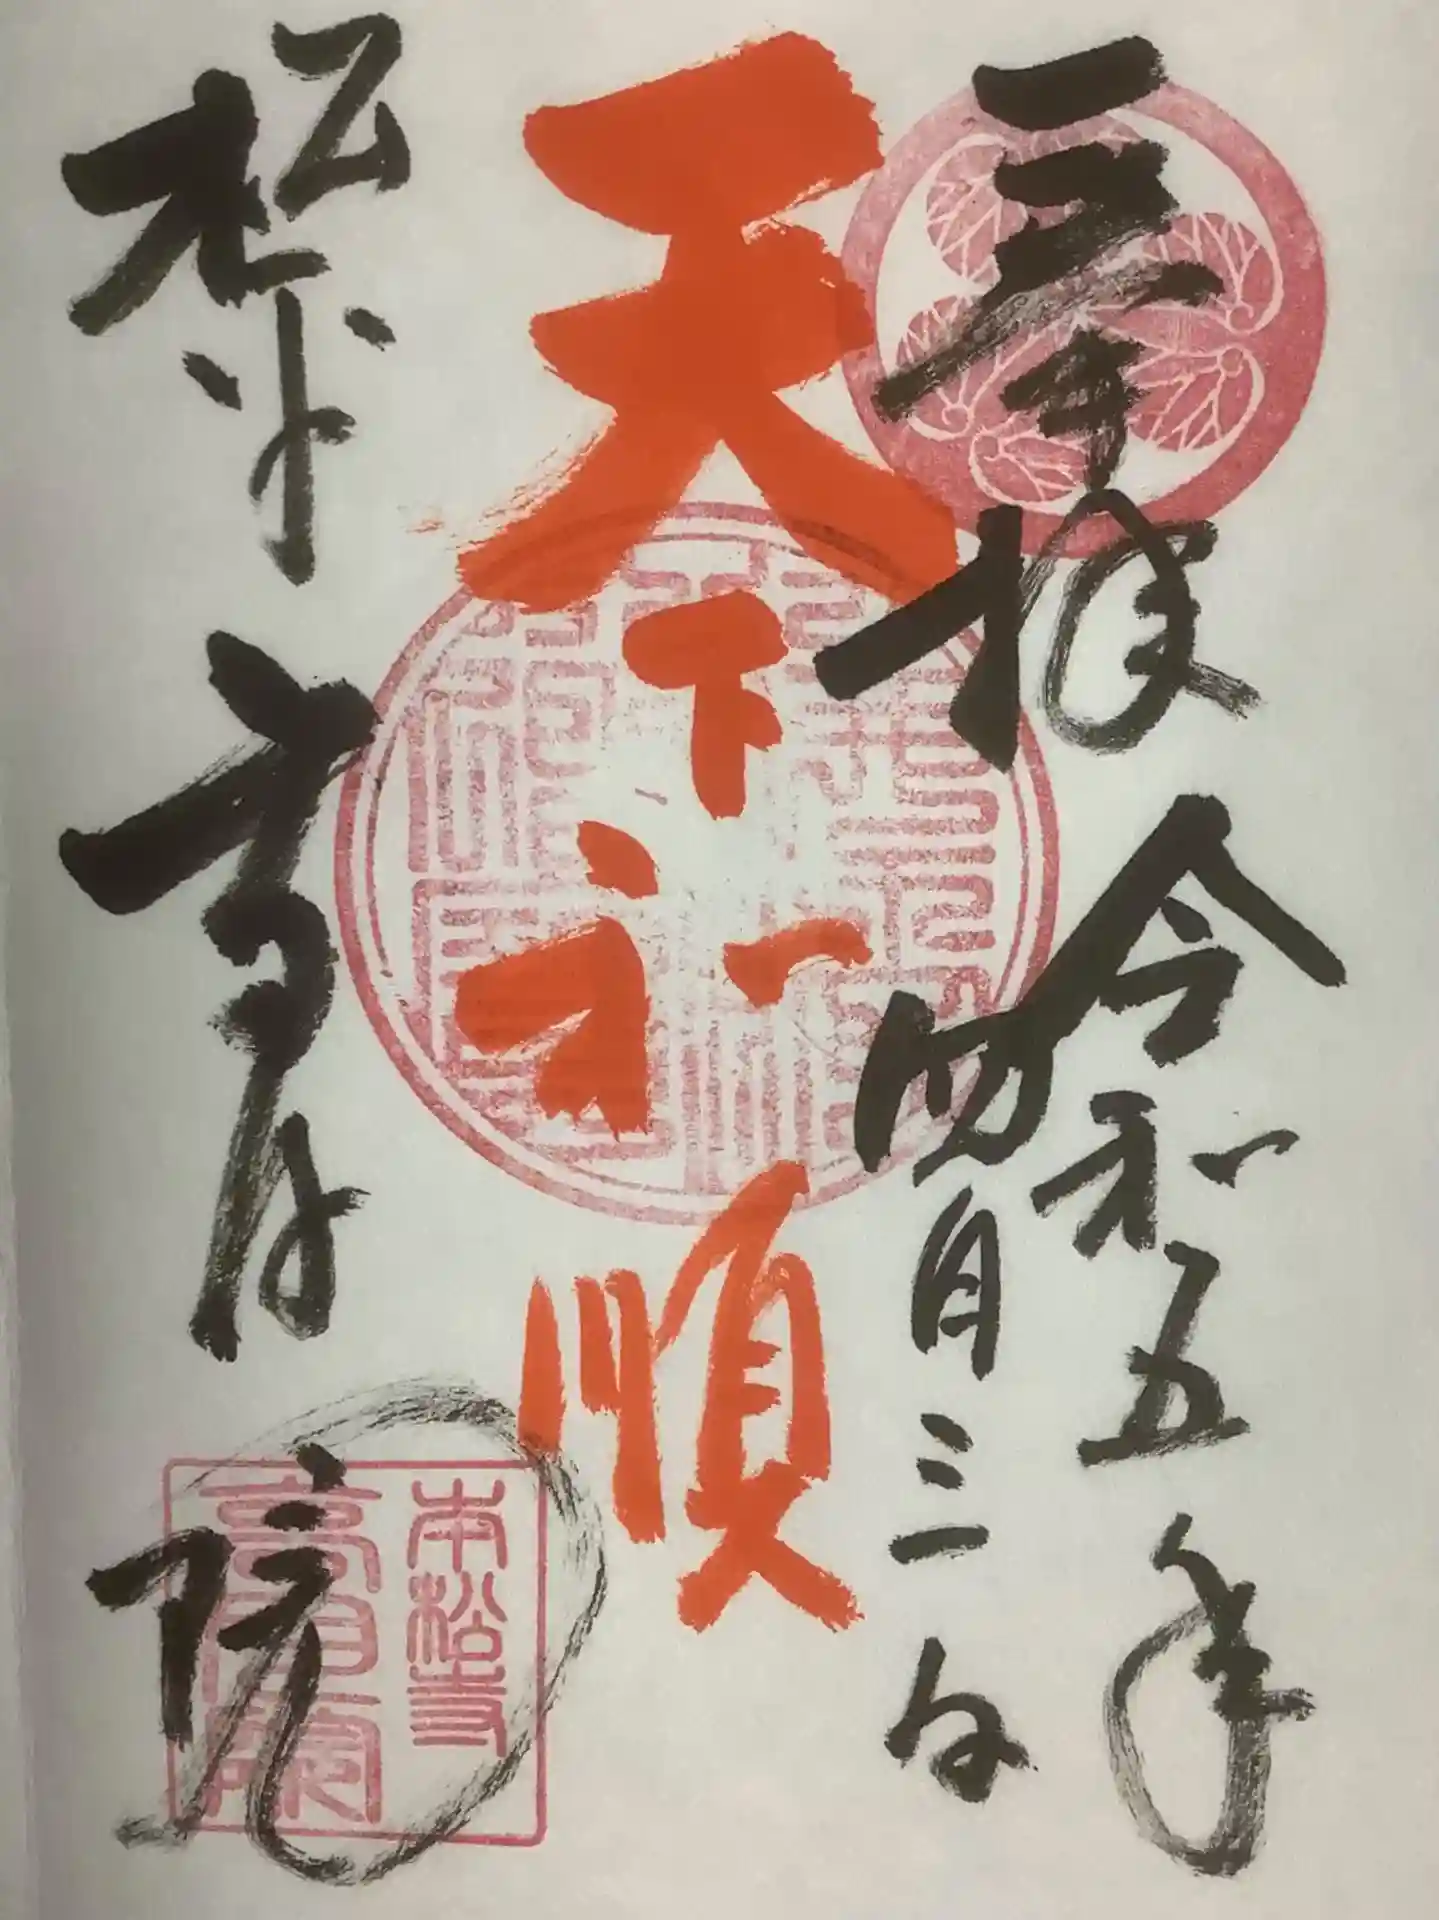 奉拝
令和五年
四月三日
天下和順
松平
高月院
本松寺
高月院